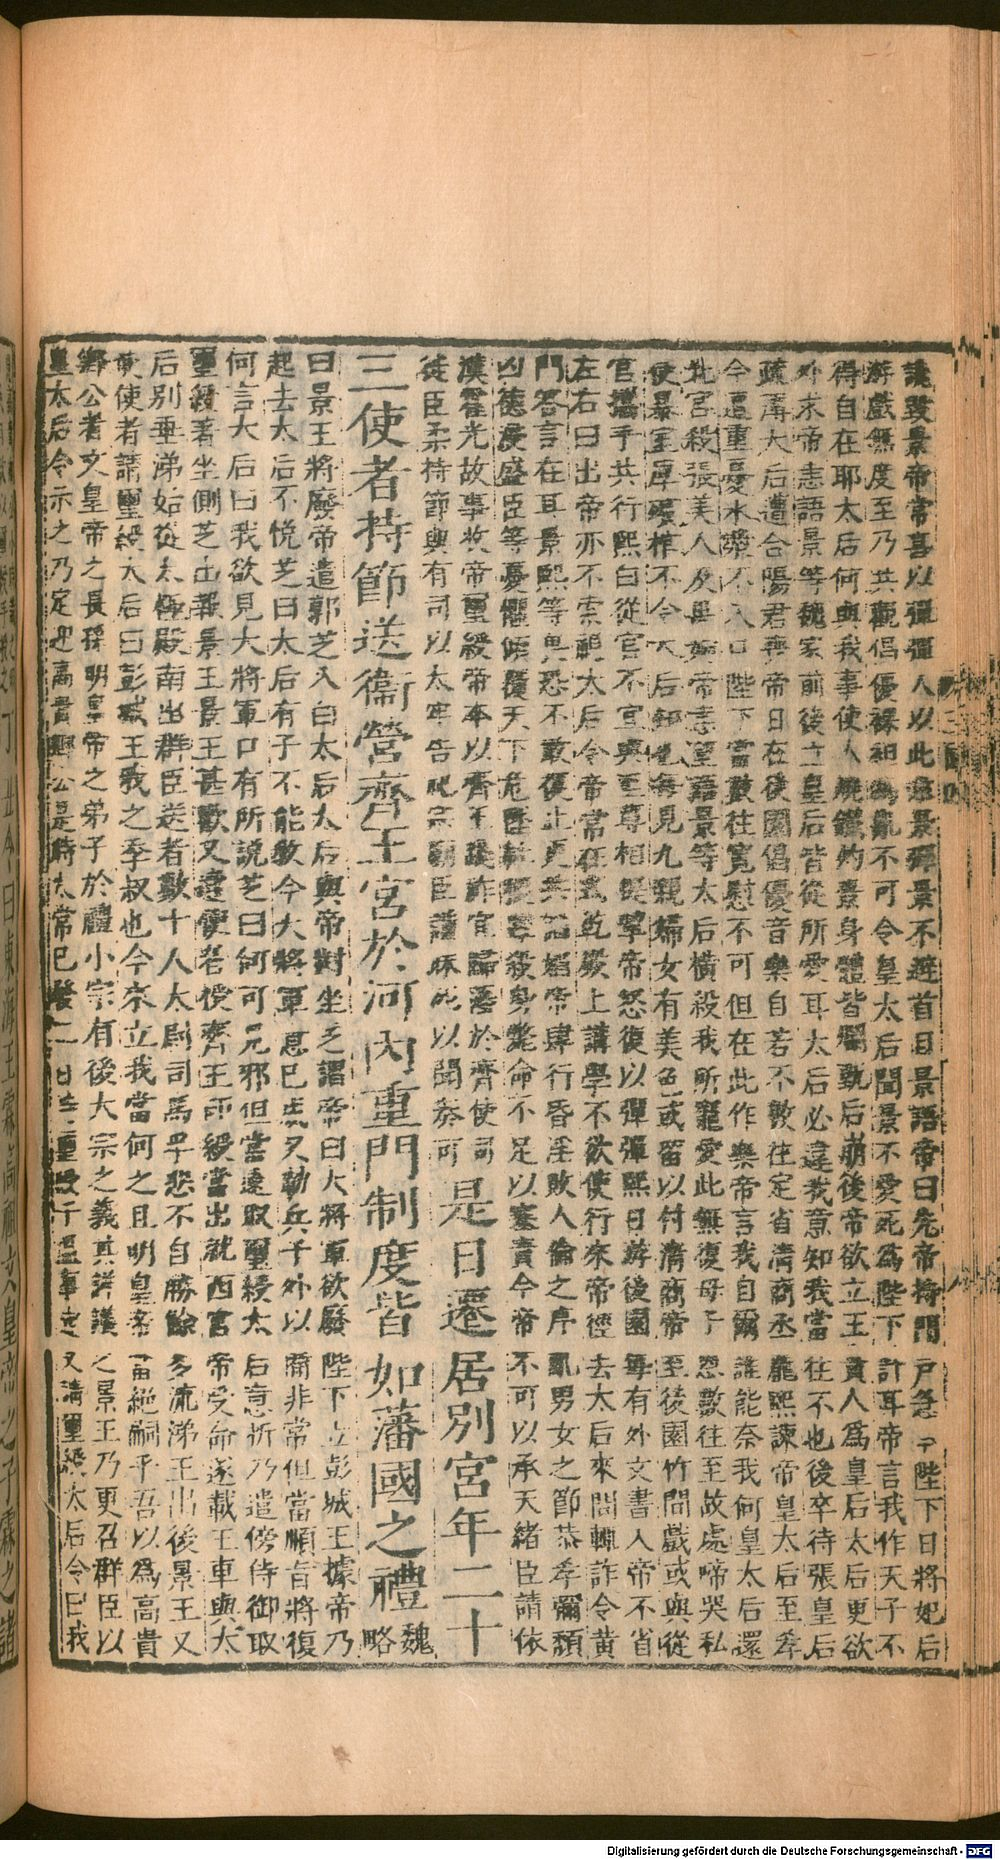 謗毀景帝常喜以彈彈人以此恚景彈景不避首目景語帝曰先帝持門戶急今陛下日將妃后
游戲無度至乃共觀倡優裸袒為亂不可令皇太后聞景不愛死為陛下計耳帝言我作天子不
得自在耶太后何與我事使人燒鐵灼景身體皆爛甄后崩後帝欲立王貴人為皇后太后更欲
外求帝恚語景等魏家前後立皇后皆從所愛耳太后必違我意知我當往不也後卒待張皇后
疏薄太后遭合陽君喪帝日在後園倡優音樂自若不數往定省清商丞龐熙諫帝皇太后至孝
今遭重憂水漿不入口陛下當數往寬慰不可但在此作樂帝言我自爾誰能奈我何皇太后還
北宮殺張美人及禺婉帝恚望語景等太后橫殺我所寵愛此無復母子恩數往至故處啼哭私
使暴室厚殯棺不令太后知也每見九親婦女有美色或留以付清商帝至後園竹間戲或與從
官攜手共行熙白從官不宜與至尊相提挈帝怒復以彈彈熙日游後園每有外文書入帝不省
左右曰出帝亦不索視太后令帝常在式乾殿上講學不欲使行來帝徑去太后來問輒詐令黃
門答言在耳景熙等畏恐不敢復止更共諂媚帝肆行昏淫敗人倫之序亂男女之節恭孝彌頹
凶德浸盛臣等憂懼傾覆天下危墜社稷雖殺身斃命不足以塞責今帝不可以承天緒臣請依
漢霍光故事收帝璽綬帝本以齊王踐祚宜歸藩於齊使司
徒臣柔持節與有司以太牢告祀宗廟臣謹昧死以聞奏可
是日遷居別宮年二十
三使者持節送衞營齊王宮於河內重門制度皆如藩國之禮魏略
曰景王將廢帝遣郭芝入白太后太后與帝對坐芝謂帝曰大將軍欲廢陛下立彭城王據帝乃
起去太后不悅芝曰太后有子不能教今大將軍意已成又勒兵于外以備非常但當順旨將復
何言太后曰我欲見大將軍口有所說芝曰何可見邪但當速取璽綬太后意折乃遣傍侍御取
璽綬著坐側芝出報景王景王甚歡又遣使者授齊王印綬當出就西宮帝受命遂載王車與太
后別垂涕始從太極殿南出群臣送者數十人太尉司馬孚悲不自勝餘多流涕王出後景王又
使使者請璽綬太后曰彭城王我之季叔也今來立我當何之且明皇帝當絕嗣乎吾以為高貴
鄉公者文皇帝之長孫明皇帝之弟子於禮小宗有後大宗之義其詳議之景王乃更召群臣以
皇太后令示之乃定迎高貴鄉公是時太常已發二日待璽綬于溫事定又請璽綬太后令曰我
Digitalisierung gefördert durch die Deutsche Forschungsgemeinschaft - DFG